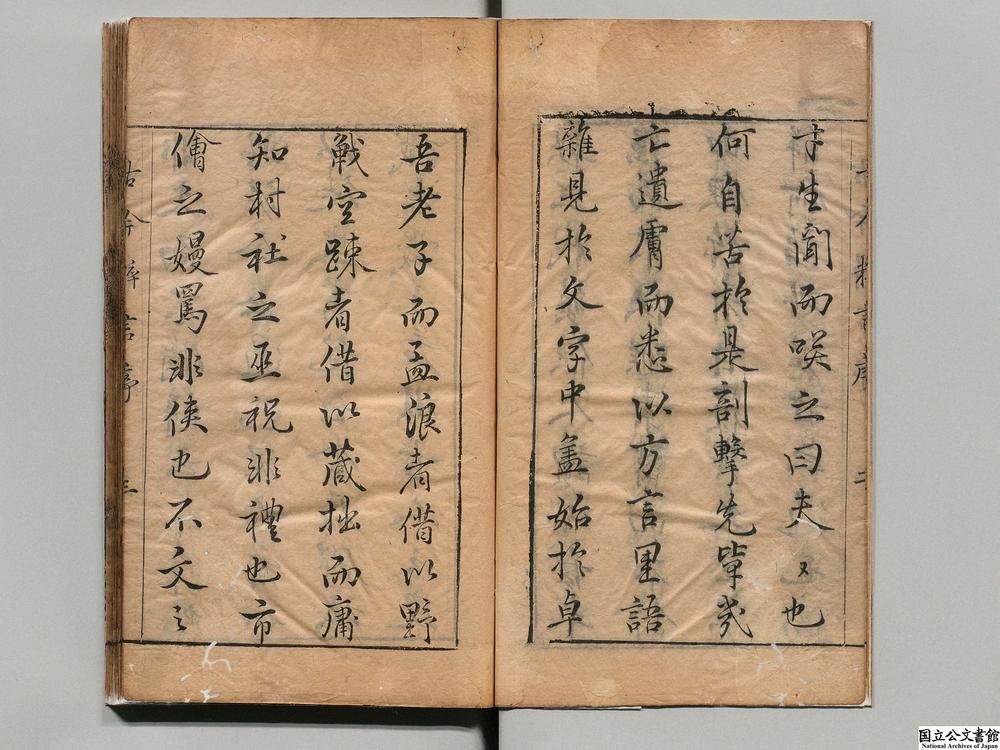 生聞而唉之曰夫又也
何自苦於是剖擊先軰㡬
亡遺膚而悉以方言里語
雜見於文字中盖始於卓
吾老子而孟浪者借以野
戰空踈者借以藏拙而庸
知村社之巫祝非禮也市
儈之嫚罵非俠也不文之
古今粹言序 三
国立公文書館
National Archives of Japan